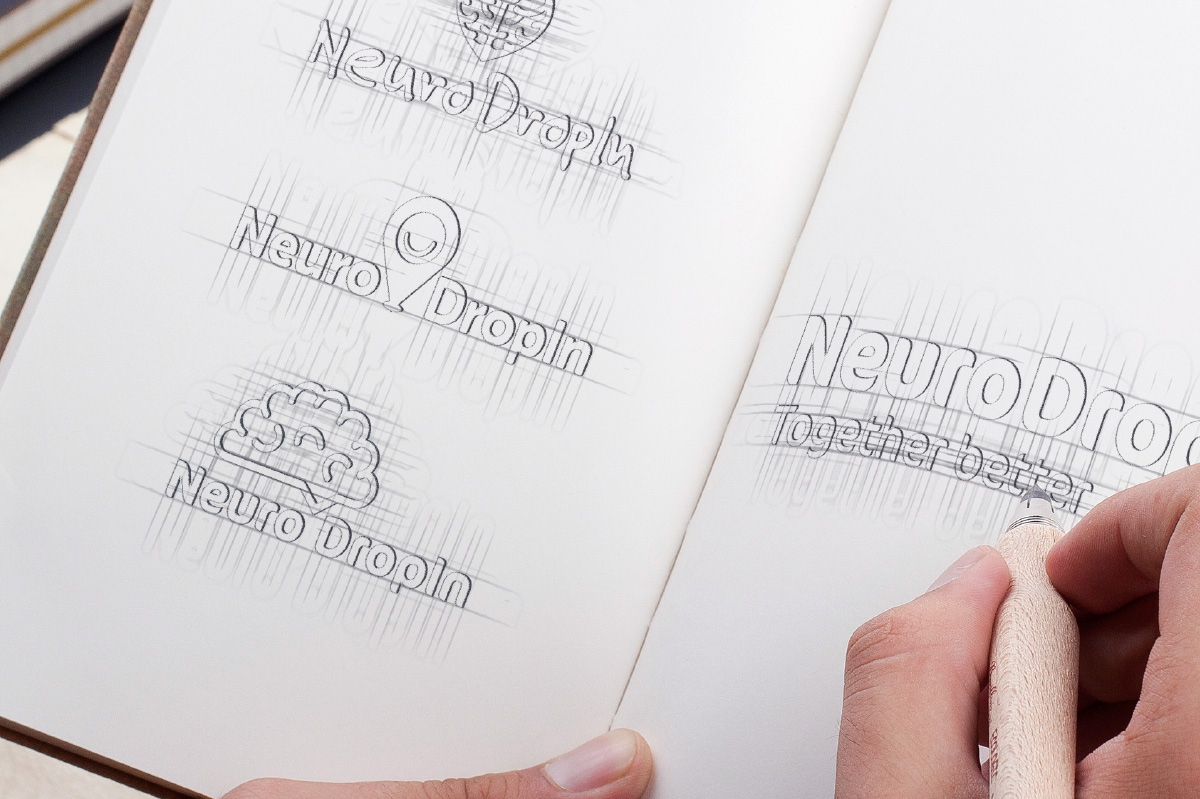 Neuro DropIn
Neuro DropIn
Neuro DropIn
Neuro Drop
Together better